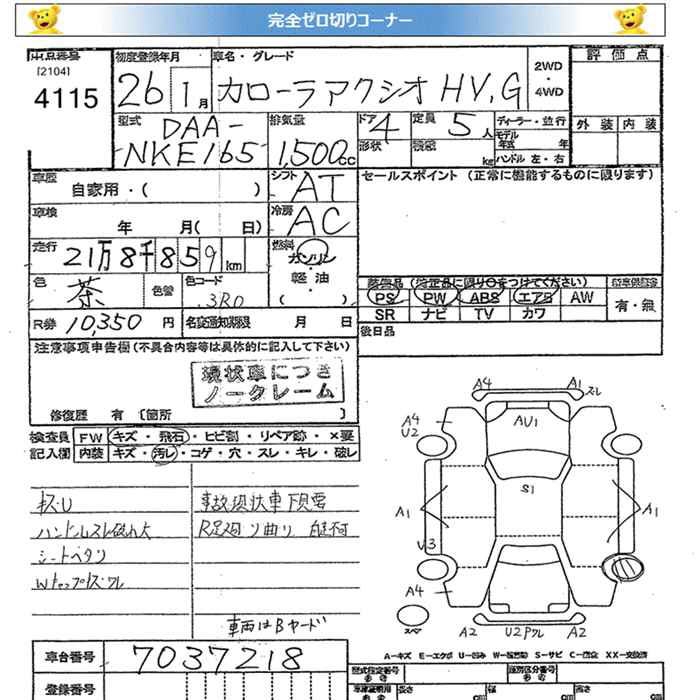 完全ゼロ切りコーナー
出品番号 初度登録年月 車名・グレード 評価点
[2104]
4115 26 1月 カローラアクシオ HV,G 2WD・4WD
型式 DAA-NKE165 排気量 1,500cc ドア 4 定員 5人 ディーラー・並行 外装 内装
形状 積載 kg モデル年式 年
ハンドル 左・右
車歴 自家用・( ) シフト AT セールスポイント (正常に機能するものに限ります)
車検 年 月( 日) 冷房 AC
走行 21万8千859km 燃料 ガソリン・軽油・( )
色 茶 色替 色コード 3R0
装備品 (純正品に限り○をつけてください)
PS PW ABS エアB AW 有・無
SR ナビ TV カワ
R券 10,350円 名変通知期限 月 日 後日品
注意事項申告欄(不具合内容等は具体的に記入して下さい)
現状車につき
ノークレーム
修復歴 有 [箇所 ]
検査員記入欄 FW キズ・飛石・ヒビ割・リペア跡・×要
内装 キズ・汚レ・コゲ・穴・スレ・キレ・破レ
キズU 事故現状車 下見要
ハンドルスレ 破れ大
シートヘタリ
車両はBヤード
A4 A1 スレ
A4 U2 AU1
S1
A1 A1
U3
A4
スペア A2 U2Pワレ A2
A－キズ E－エクボ U－凹み W－波 S－サビ C－腐食 XX－交換済
車台番号 7037218
型式指定番号 類別区分番号
登録番号 長さ 幅 高さ